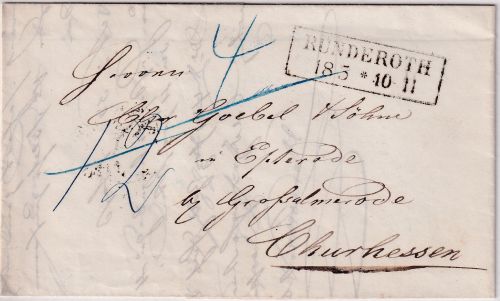 RÜNDEROTH
18 5 * 10-11
4
Herren
Chr Goebel & Söhne
12
in Epterode
by Großalmerode
Churhessen